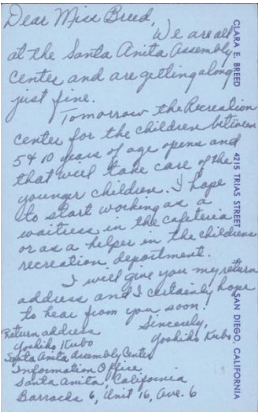 Dear Miss Breed,
We are all
at the Santa Anita Assembly
Center and are getting along
just fine.
Tomorrow the Recreation
center for the children between
5 & 10 years of age opens and
that will take care of the
younger children. I hope
to start working as a
waitress in the cafeteria
or as a helper in the childrens
recreation department.
I will give you my return
address and I certainly hope
to hear from you soon!
Sincerely,
Yoshiko Kubo
Return address
Yoshiko Kubo
Santa Anita Assembly Center
Information Office
Santa Anita, California
Barracks 6, Unit 16, Ave. 6
CLARA E. BREED
4215 TRIAS STREET
SAN DIEGO, CALIFORNIA